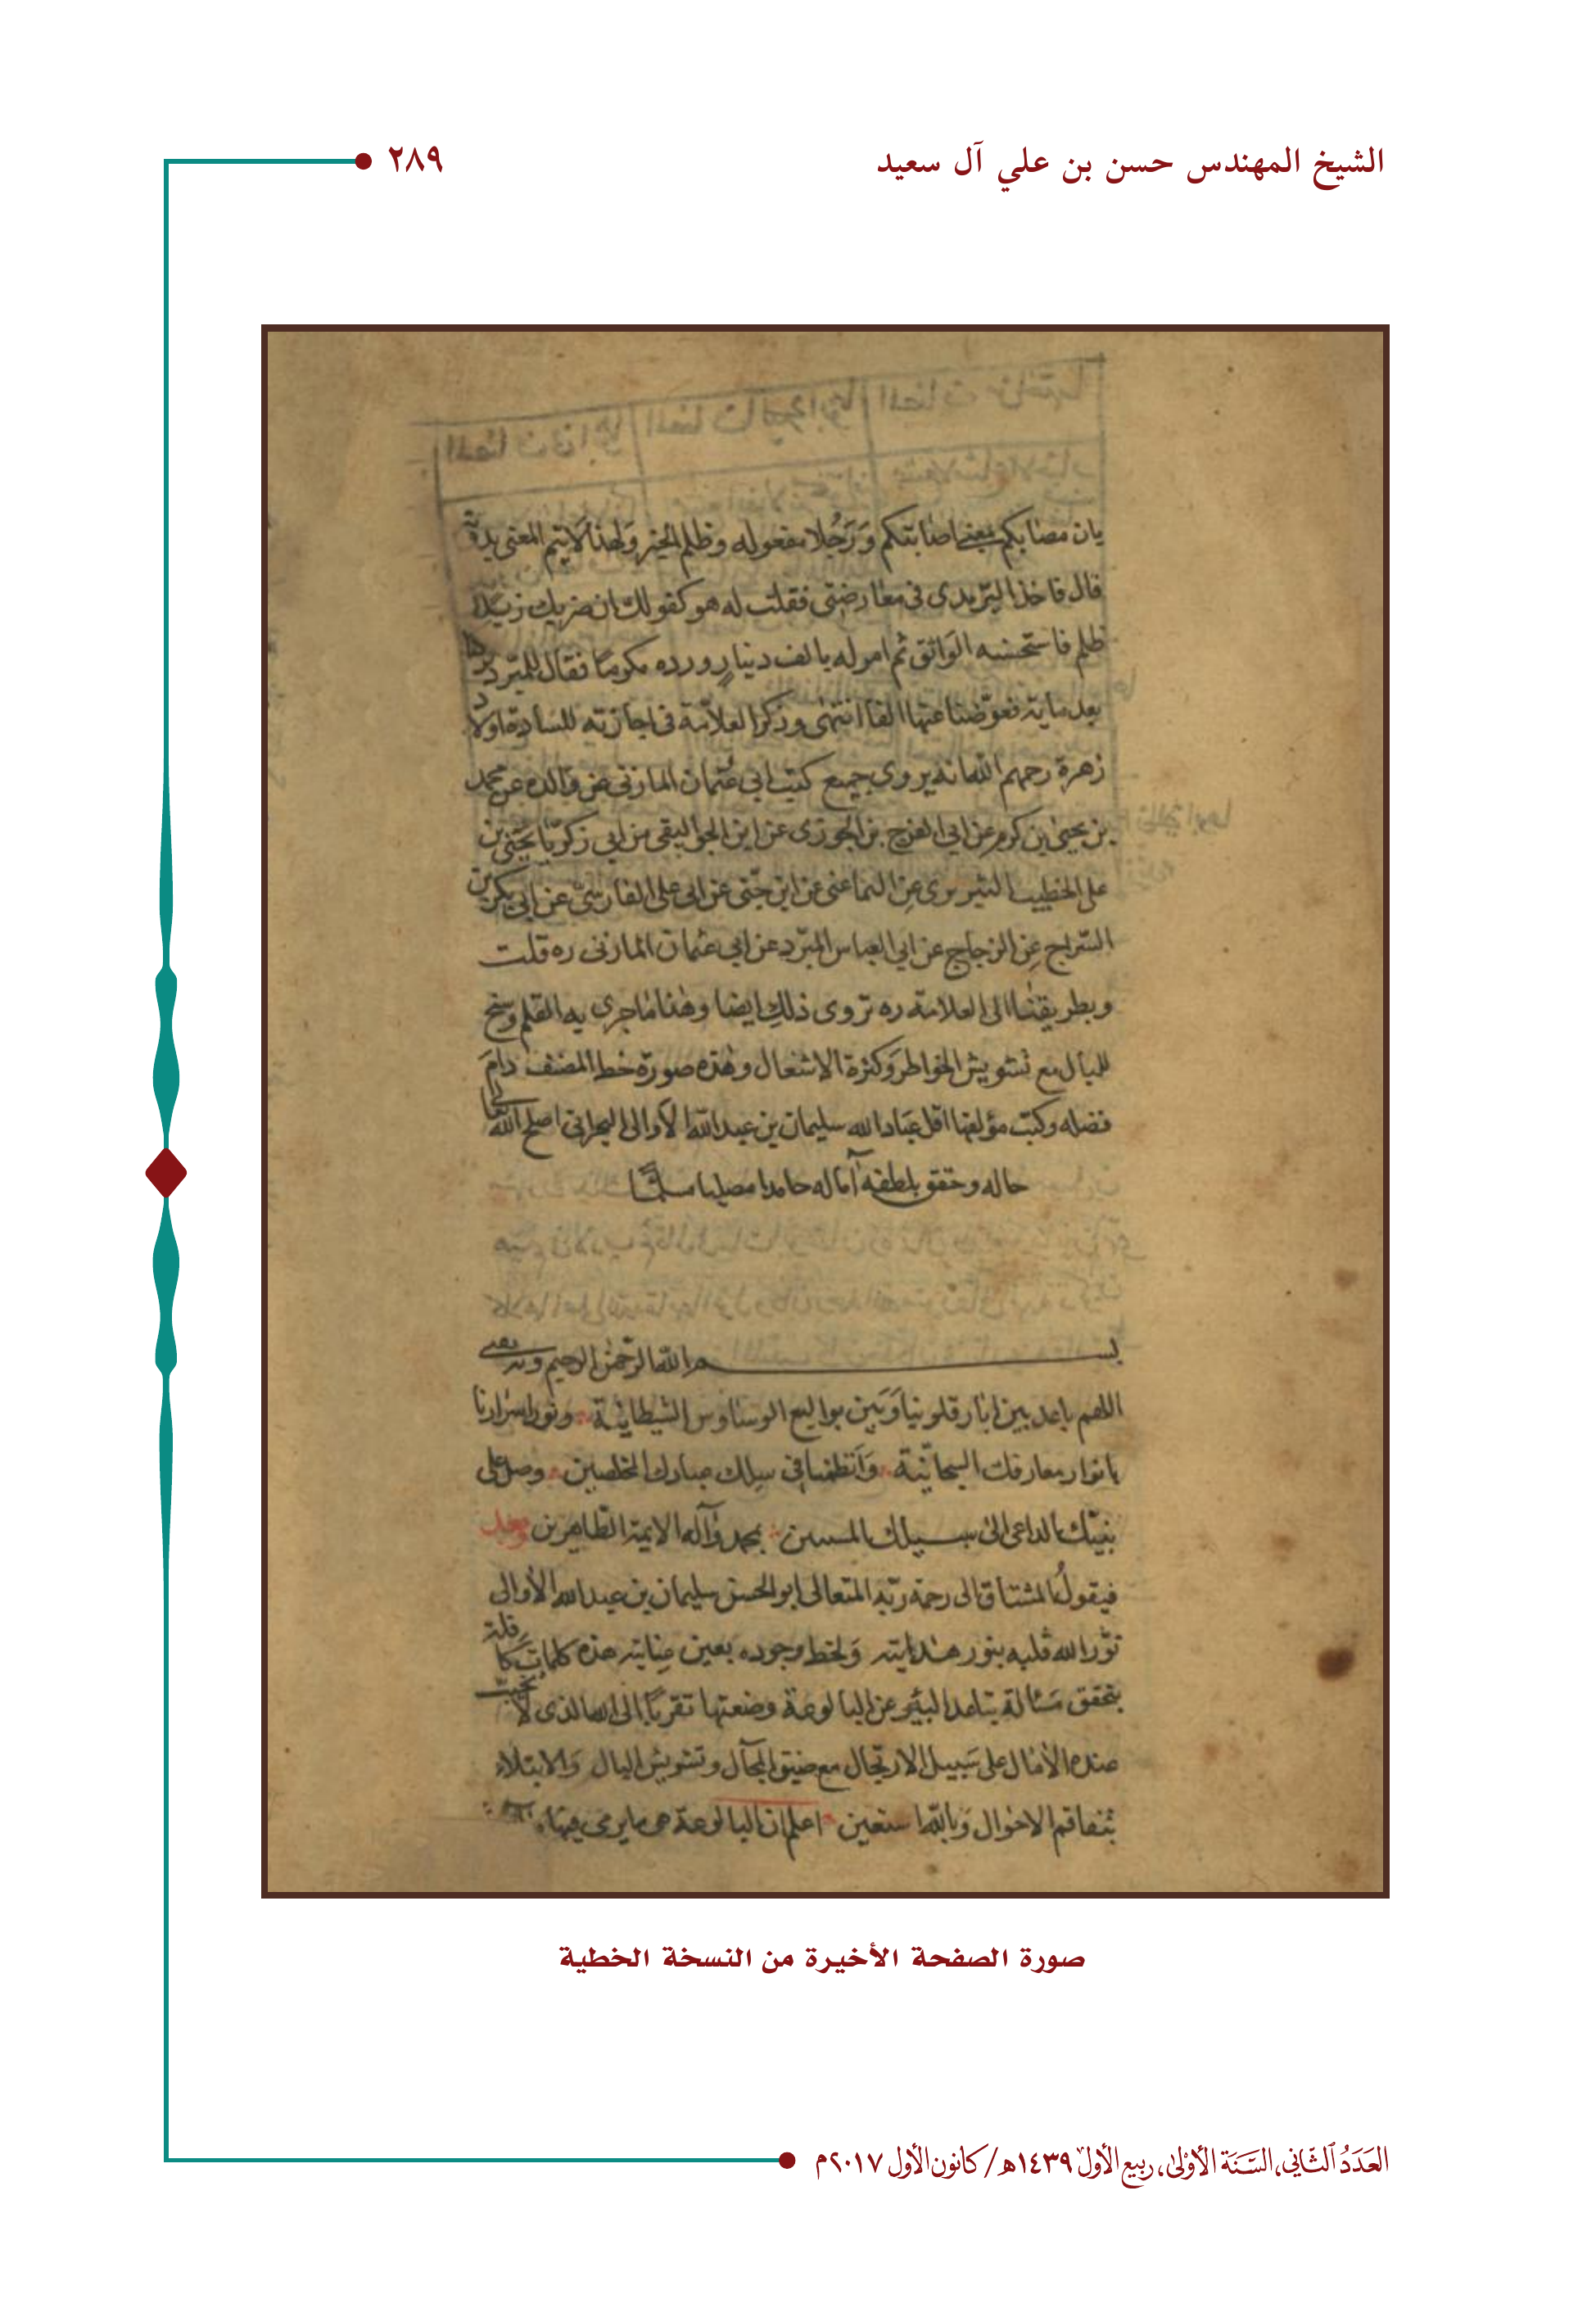 الشيخ المهندس حسن بن علي آل سعيد
٢٨٩
بان مصابكم بمعنى اصابتكم وَرَجُلا مفعوله وظلم الخبر وَلهذا لايتم المعنى بدونه
قال فاخذ اليزيدى فى معارضتى فقلت له هو كقولك ان ضربك زيدا
ظلم فاستحسنه الوَاثق ثم امر له بالف دينار ورده مكرما فقال للمبرّد
بعد مايه فعوّضنا عنها الفا انتهى وذكر العلاّمة فى اجازته للسادة اولاد
زهرة رحمهم الله انه يروى جميع كتب ابي عثمان المازنى عن والده عن محمد
بن يحيى بن كرم عن ابي الفرج بن الجوزى عن ابن الجواليقى عن ابي زكريا يحيى بن
على الخطيب التبريزى عن الثمانيني عن ابن جنّى عن ابى على الفارسىّ عن ابي بكر بن
السّراج عن الزجاج عن ابي العباس المبرّد عن ابي عثمان المازنى ره قلت
وبطريقنا الى العلامة ره نروى ذلك ايضا وهذا ماجرى به القلم وسنح
للبال مع تشويش الخواطر وَكثرة الاشغال وهذه صورة خط المصنف دامَ
فضله وكتب مؤلفها اقل عباد الله سليمان بن عبدالله الاَوالى البحرانى اصلح الله تعالى
حاله وحقق بلطفه آماله حامدا مصليا مسلّمًا
بسم الله الرّحمن الرحيم وبه نستعين
اللهم باعد بين ابار قلوبنا وَبَين بواليع الوساوس الشيطانية ونور اسرارنا
بانوار معارفك السبحانّية وَانظمنا فى سِلك عبادك المخلصين وصل على
نبيّك الداعى الى سبيلك المبين محمد وَآله الايمة الطاهرين وبعد
فيقولُ المشتاق الى رحمة ربّه المتعالى ابو الحسن سليمان بن عبدالله الاَوالى
نوّر الله قلبه بنور هدايته وَلحظ وجوده بعين عنايته هذه كلمات كافلة
بتحقق مسألة تباعد البئر عن البالوعة وضعتها تقربًا الى الله الذى لا تخيب
عنده الاٰمال على سَبيل الارتجال مع ضيق المجآل وتشويش البال وَالابتلاء
بتفاقم الاحوال وَبالله استعين اعلم ان البالوعة هى مايرمى فيها
صورة الصفحة الأخيرة من النسخة الخطية
العَدَدُ الثَّاني، السَّنَة الأوْلى، ربيع الأول ١٤٣٩هـ/كانون الأول ٢٠١٧م